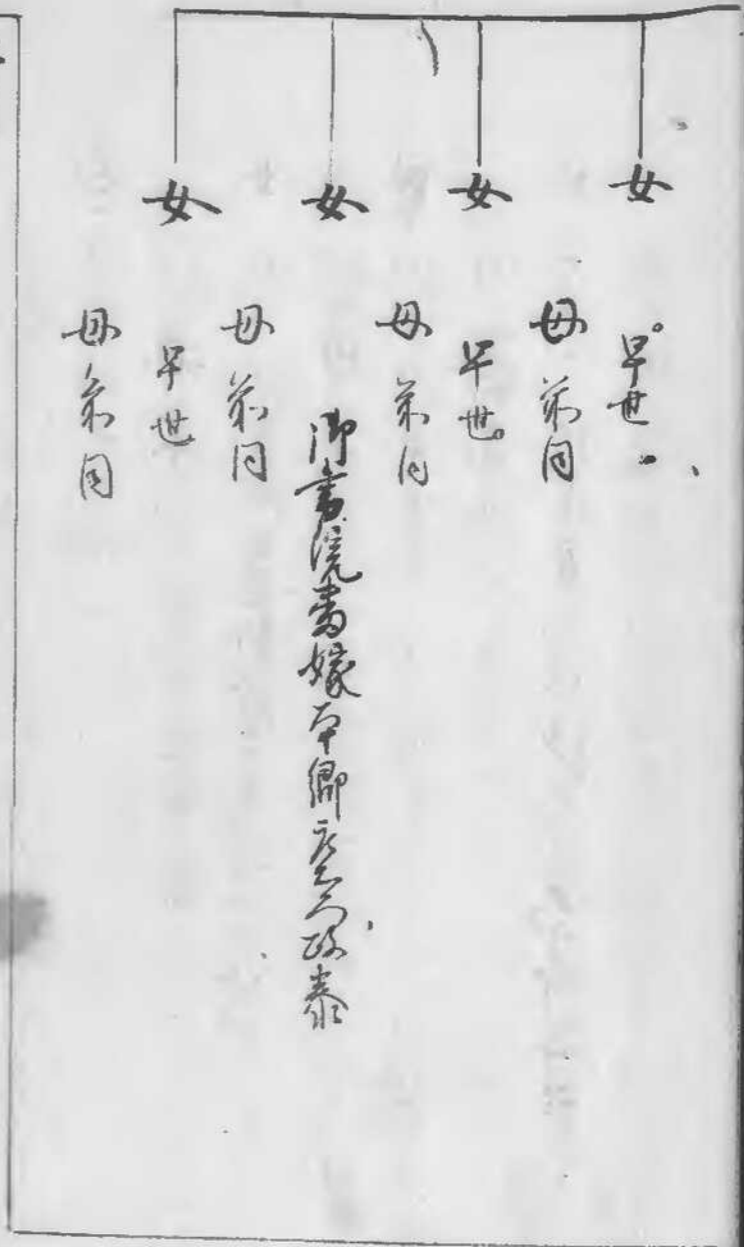 女
早世
母前同
女
早世
母前同
女
御書院番嫁本郷庄三郎政泰
母前同
女
早世
母前同